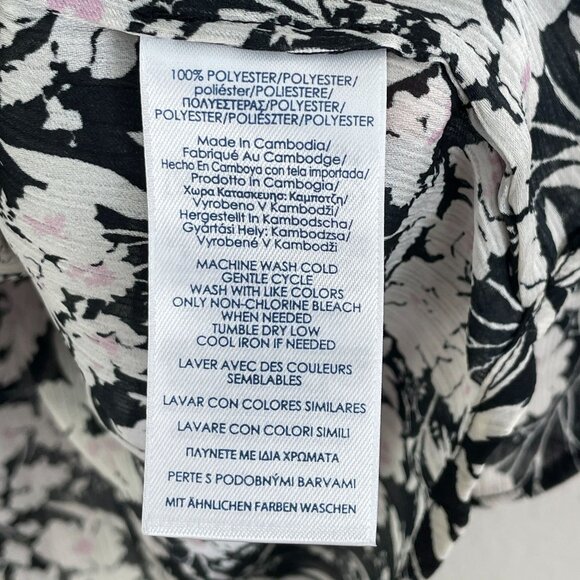 100% POLYESTER/POLYESTER/
poliéster/POLIESTERE/
ΠΟΛΥΕΣΤΕΡΑΣ/POLYESTER/
POLYESTER/POLIÉSZTER/POLYESTER
Made In Cambodia/
Fabriqué Au Cambodge/
Hecho En Camboya con tela importada/
Prodotto In Cambogia/
Χωρα Κατασκευης: Καμποτζη/
Vyrobeno V Kambodži/
Hergestellt In Kambodscha/
Gyártási Hely: Kambodzsa/
Vyrobené V Kambodži
MACHINE WASH COLD
GENTLE CYCLE
WASH WITH LIKE COLORS
ONLY NON-CHLORINE BLEACH
WHEN NEEDED
TUMBLE DRY LOW
COOL IRON IF NEEDED
LAVER AVEC DES COULEURS
SEMBLABLES
LAVAR CON COLORES SIMILARES
LAVARE CON COLORI SIMILI
ΠΛΥΝΕΤΕ ΜΕ ΙΔΙΑ ΧΡΩΜΑΤΑ
PERTE S PODOBNÝMI BARVAMI
MIT ÄHNLICHEN FARBEN WASCHEN